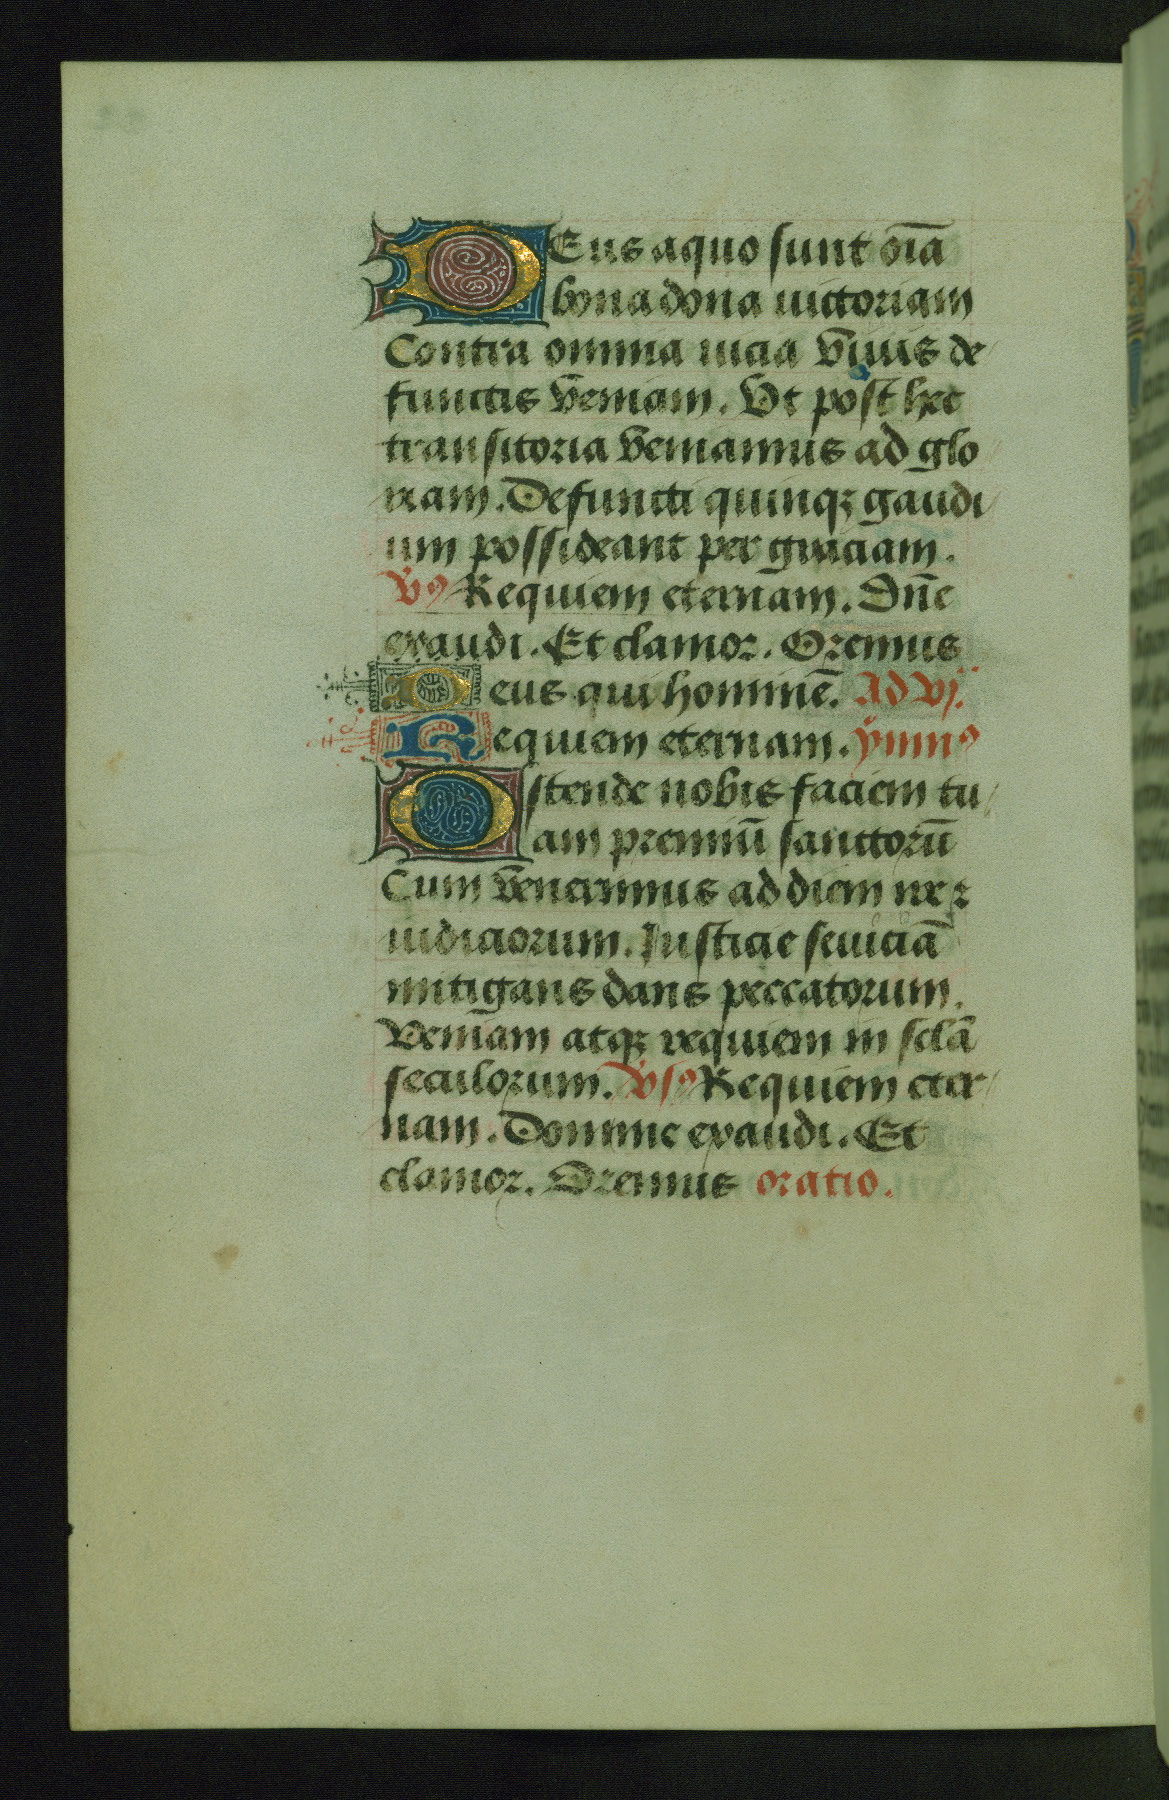 DEus a quo sunt oīa
bona dona uictoriam
Contra omnia uicia viuis de
functis veniam. Vt post hec
transitoria veniamus ad glo
riam. Defuncti quinqz gaudi
um possideant per graciam.
Vꝰ Requiem eternam. Dn̄e
exaudi. Et clamor. Oremus
Deus qui hominē. Ad vj.
Requiem eternam. ymnꝰ
Ostende nobis faciem tu
am premiū sanctorū
Cum venerimus ad diem
iudiciorum. Iusticie seuiciā
mitigans dans peccatorum.
Veniam atqz requiem in sclā
seculorum. Vsꝰ Requiem eter
nam. Domine exaudi. Et
clamor. Oremus oratio.